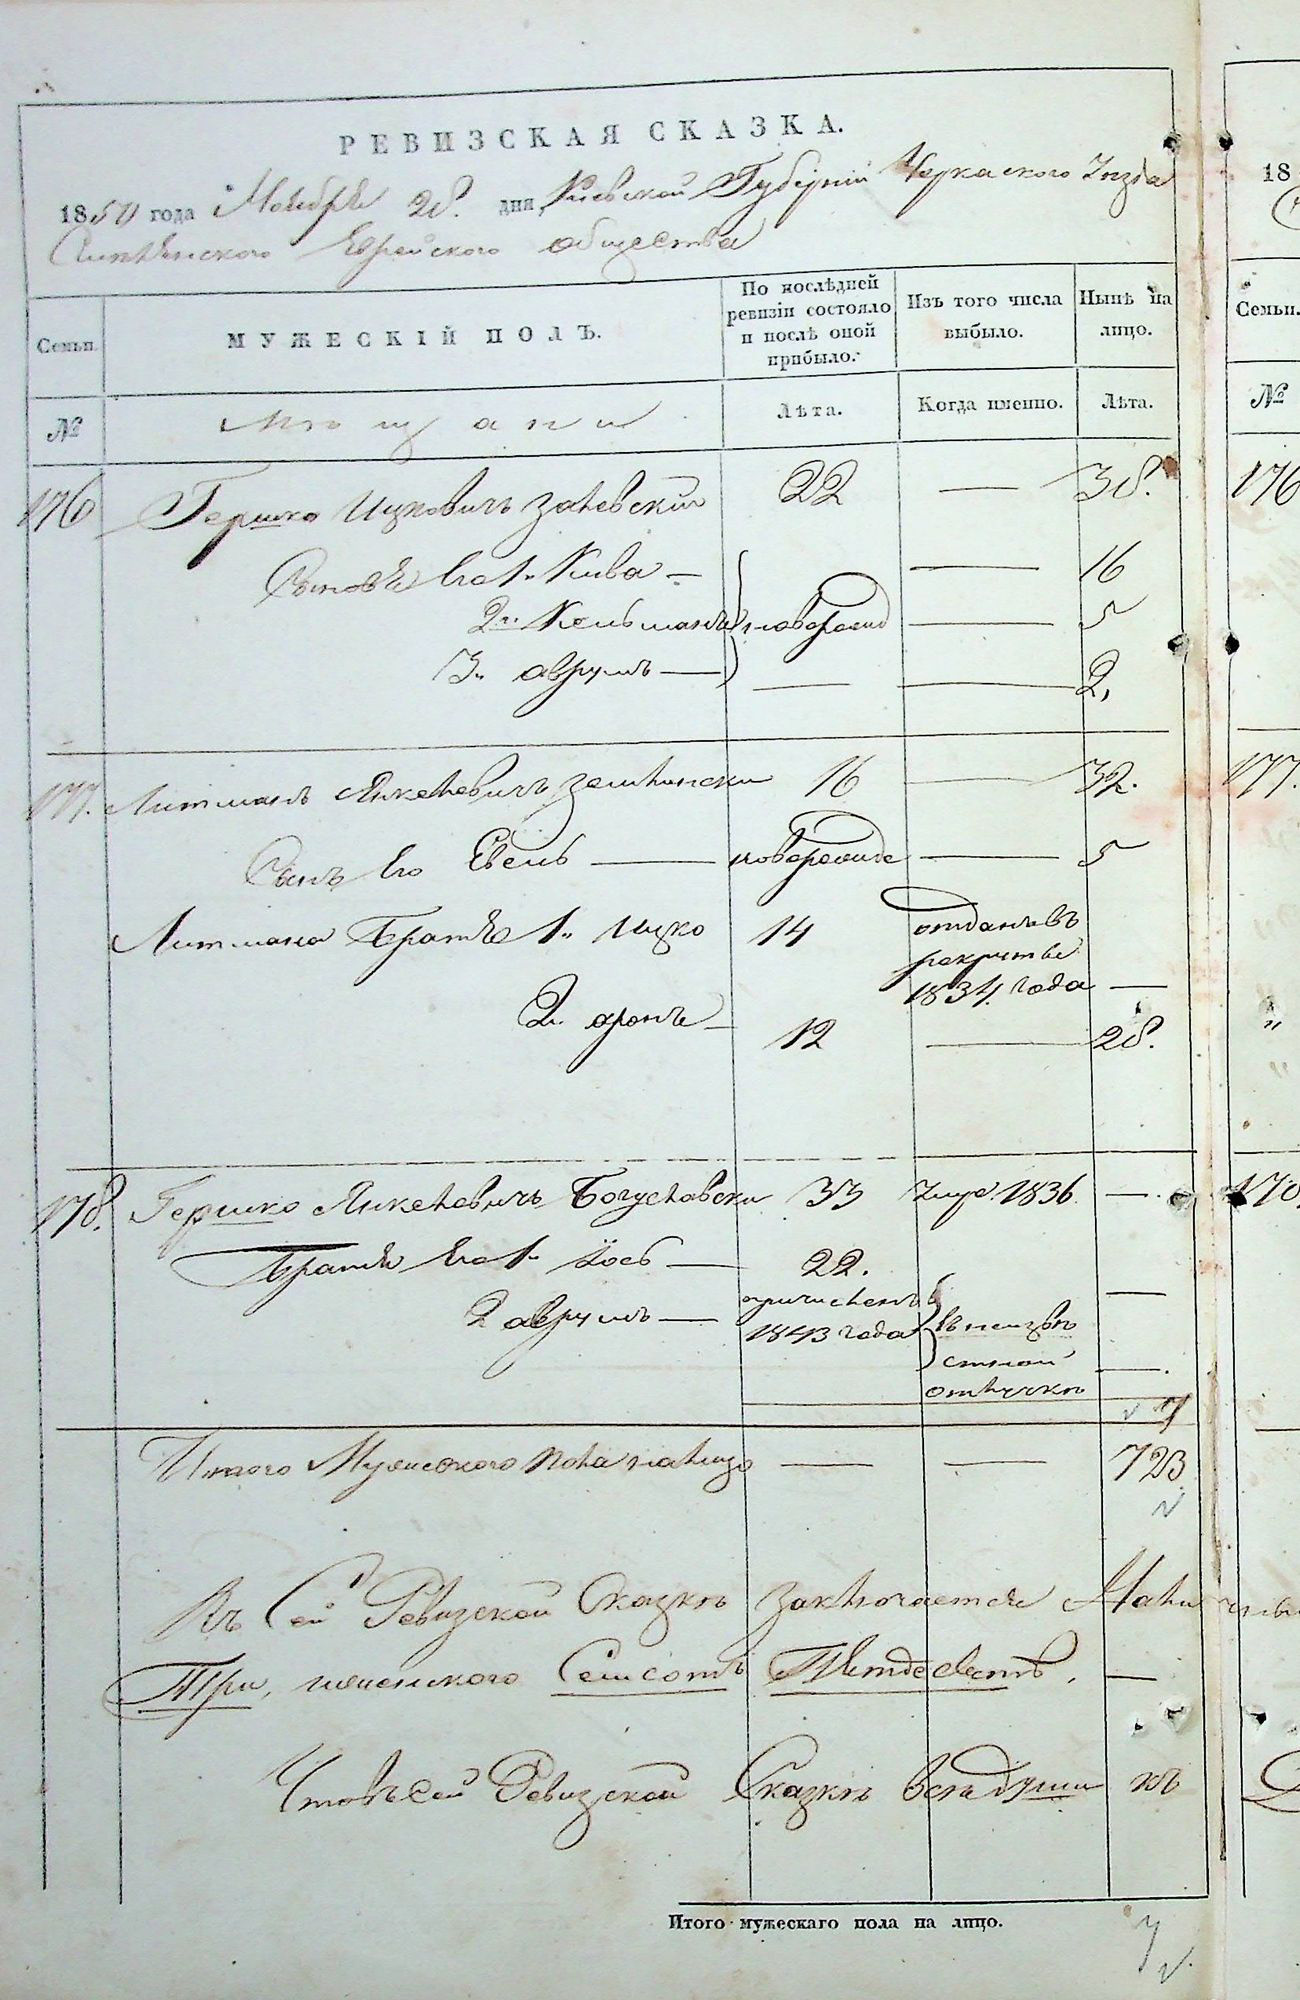 РЕВИЗСКАЯ СКАЗКА.
1850 года Ноября 28. дня, Киевской Губерніи Черкаского Уезда
Еврейского общества
Семьи.
МУЖЕСКІЙ ПОЛЪ.
По послѣдней ревизіи состояло и послѣ оной прибыло.
Изъ того числа выбыло.
Нынѣ на лицо.
№
Мѣщани
Лѣта.
Когда именно.
Лѣта.
176 Гершко Ицковичъ Заневский 22 — 38.
Сыновя Его 1. Кива — — 16
2. Кельманъ новорожд — 5
3. аврумъ — — — 2,
177. Литманъ Янкелевичъ 16 — 32.
Сынъ Его Евель — новорожде — 5
Литмана Братья 1. Ицко 14 отданъ въ
рекрути
1834 года —
2. аронъ — 12 — 28.
178. Гершко Янкелевичъ Богуславски 33 Умре 1836. —
Братья Его 1. Иось — 22. —
2 аврумъ — причисленъ
1843 года въ неизвѣ
стной —
отлучкѣ
7
Итого Мужеского пола налицо — — 723
Въ сей Ревизской Сказкѣ заключается Нали
Три, мужеского Семсотъ —
Что въ сей Ревизской Сказкѣ всѣ души къ
Итого мужескаго пола на лицо.
7
18
Семьи.
№
176
177.
178